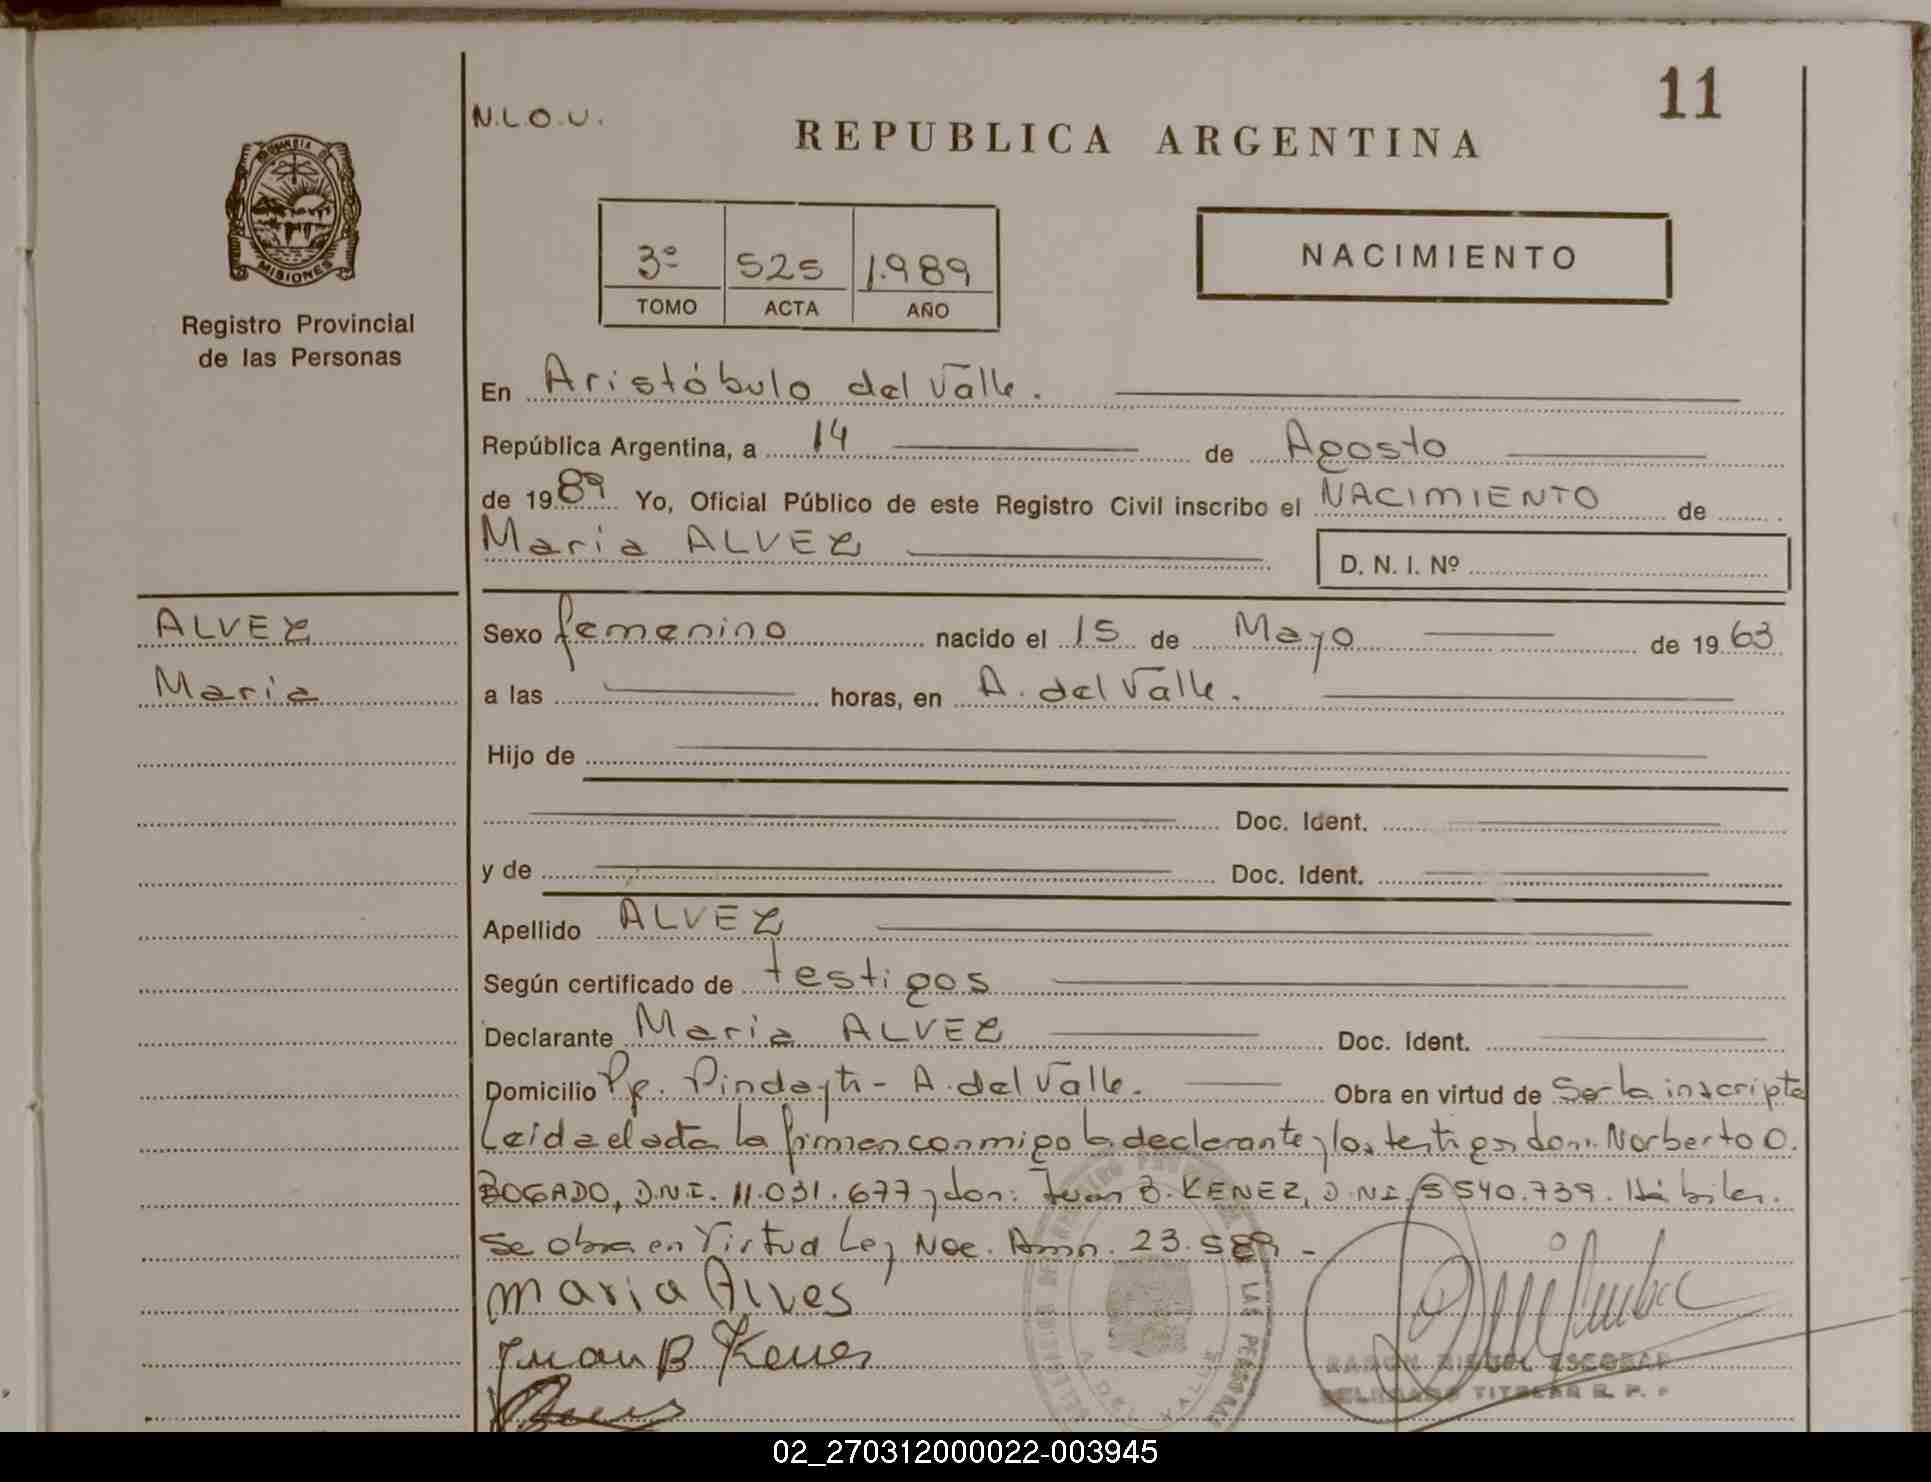 11
N.L.O.U.
REPUBLICA ARGENTINA
MISIONES
Registro Provincial
de las Personas
3º 525 1.989
TOMO ACTA AÑO
NACIMIENTO
En Aristóbulo del Valle.
República Argentina, a 14 de Agosto
de 1989 Yo, Oficial Público de este Registro Civil inscribo el NACIMIENTO de
Maria ALVEZ D. N. I. Nº
ALVEZ
Maria
Sexo femenino nacido el 15 de Mayo de 1963
a las horas, en A. del Valle.
Hijo de
Doc. Ident.
y de Doc. Ident.
Apellido ALVEZ
Según certificado de testigos
Declarante Maria ALVEZ Doc. Ident.
Domicilio Pje. Pindayti - A. del Valle. Obra en virtud de Ser la inscripta
Leida el acta la firman conmigo la declarante y los testigos don: Norberto O.
BOGADO, D.N.I. 11.031.677 y don: Juan B. KENEZ, D.N.I. 5 540.739. Hábiles.
Se obra en Virtud Ley Nac. Amn. 23.589 -
maria Alves
Juan B Kenes
RAMON MIGUEL ESCOBAR
DELEGADO TITULAR R. P. P
02_270312000022-003945